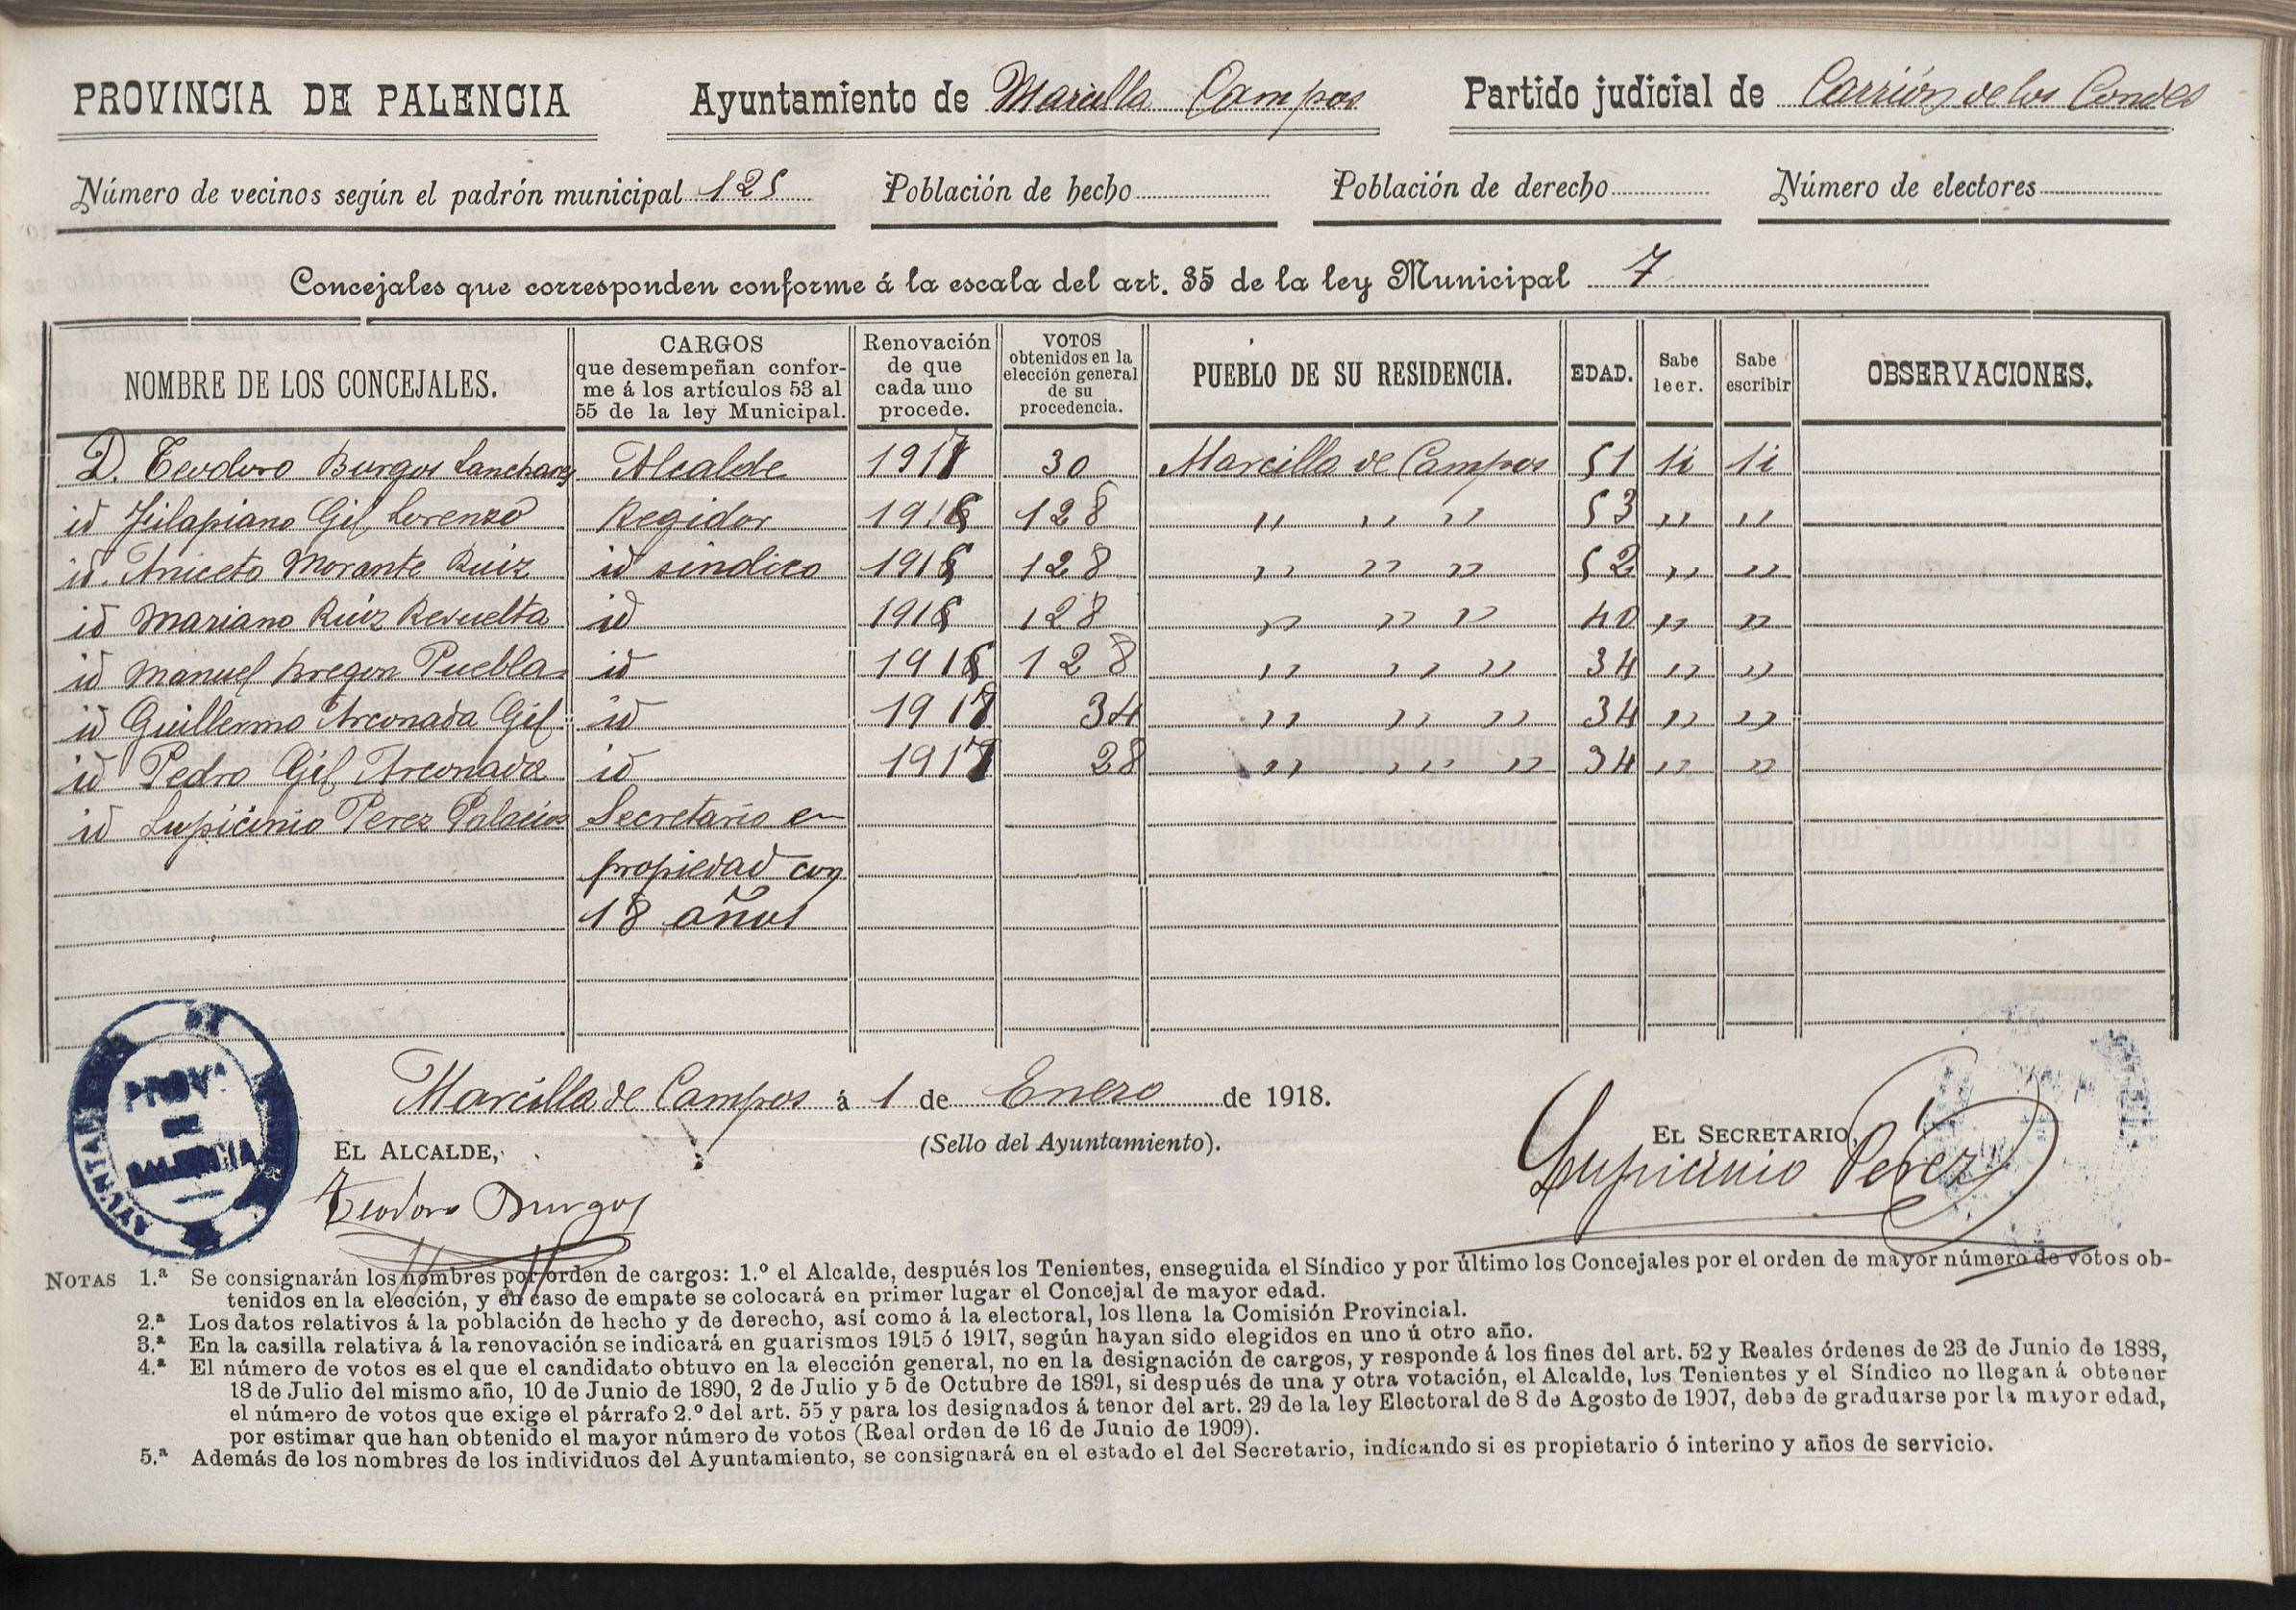 PROVINCIA DE PALENCIA Ayuntamiento de Marcilla Campos Partido judicial de Carrión de los Condes
Número de vecinos según el padrón municipal 125 Población de hecho Población de derecho Número de electores
Concejales que corresponden conforme á la escala del art. 35 de la ley Municipal 7
NOMBRE DE LOS CONCEJALES. CARGOS que desempeñan conforme á los artículos 53 al 55 de la ley Municipal. Renovación de que cada uno procede. VOTOS obtenidos en la elección general de su procedencia. PUEBLO DE SU RESIDENCIA. EDAD. Sabe leer. Sabe escribir OBSERVACIONES.
D. Teodoro Burgos Lanchares Alcalde 1917 30 Marcilla de Campos 51 si si
id Gil Lorenzo Regidor 1915 128 " " " 53 " "
id. Aniceto Morante Ruiz id sindico 1915 128 " " " 52 " "
id Mariano Ruiz Revuelta id 1915 128 " " " 40 " "
id Manuel Bregon Puebla id 1915 128 " " " 34 " "
id Guillermo Arconada Gil id 1917 34 " " " 34 " "
id Pedro Gil Arconada id 1917 28 " " " 34 " "
id Lupicinio Perez Palacios Secretario en
propiedad con
18 años
Marcilla de Campos á 1 de Enero de 1918.
EL ALCALDE, (Sello del Ayuntamiento). EL SECRETARIO,
Teodoro Burgos Lupicinio Perez
AYUNTAM DE
PROVª
DE
PALENCIA
NOTAS 1.ª Se consignarán los nombres por orden de cargos: 1.º el Alcalde, después los Tenientes, enseguida el Síndico y por último los Concejales por el orden de mayor número de votos ob-
tenidos en la elección, y en caso de empate se colocará en primer lugar el Concejal de mayor edad.
2.ª Los datos relativos á la población de hecho y de derecho, así como á la electoral, los llena la Comisión Provincial.
3.ª En la casilla relativa á la renovación se indicará en guarismos 1915 ó 1917, según hayan sido elegidos en uno ú otro año.
4.ª El número de votos es el que el candidato obtuvo en la elección general, no en la designación de cargos, y responde á los fines del art. 52 y Reales órdenes de 23 de Junio de 1888,
18 de Julio del mismo año, 10 de Junio de 1890, 2 de Julio y 5 de Octubre de 1891, si después de una y otra votación, el Alcalde, los Tenientes y el Síndico no llegan á obtener
el número de votos que exige el párrafo 2.º del art. 55 y para los designados á tenor del art. 29 de la ley Electoral de 8 de Agosto de 1907, debe de graduarse por la mayor edad,
por estimar que han obtenido el mayor número de votos (Real orden de 16 de Junio de 1909).
5.ª Además de los nombres de los individuos del Ayuntamiento, se consignará en el estado el del Secretario, indicando si es propietario ó interino y años de servicio.